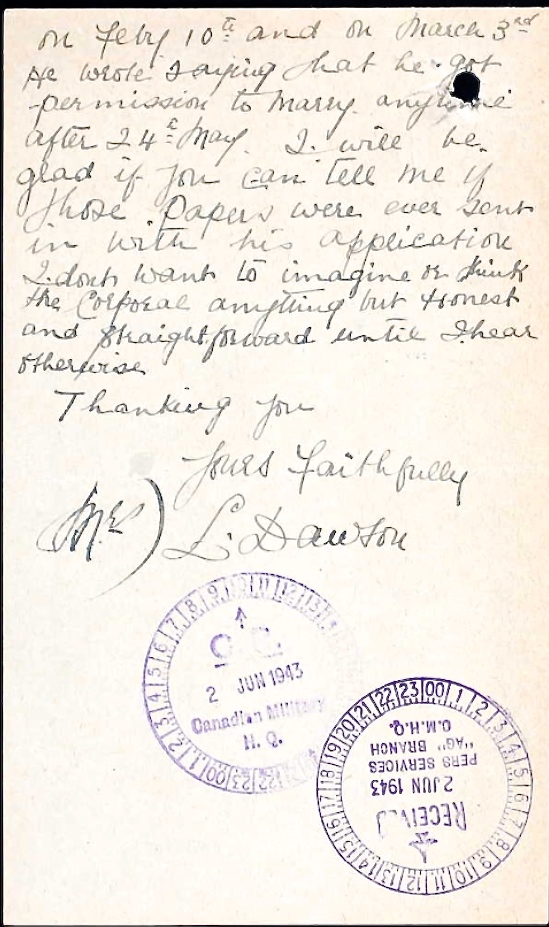 on Feby 10th and on March 3rd
He wrote saying that he got
permission to Marry. anytime
after 24th May. I will be
glad if you can tell me if
those Papers were ever sent
in with his application
I dont want to imagine or think
the Corporal anything but Honest
and straightforward until I hear
otherwise
Thanking you
Yours Faithfully
(Mrs) L. Dawson
2 JUN 1943
Canadian Military
H. Q.
RECEIVED
2 JUN 1943
PERS SERVICES
"AG" BRANCH
C.M.H.Q.